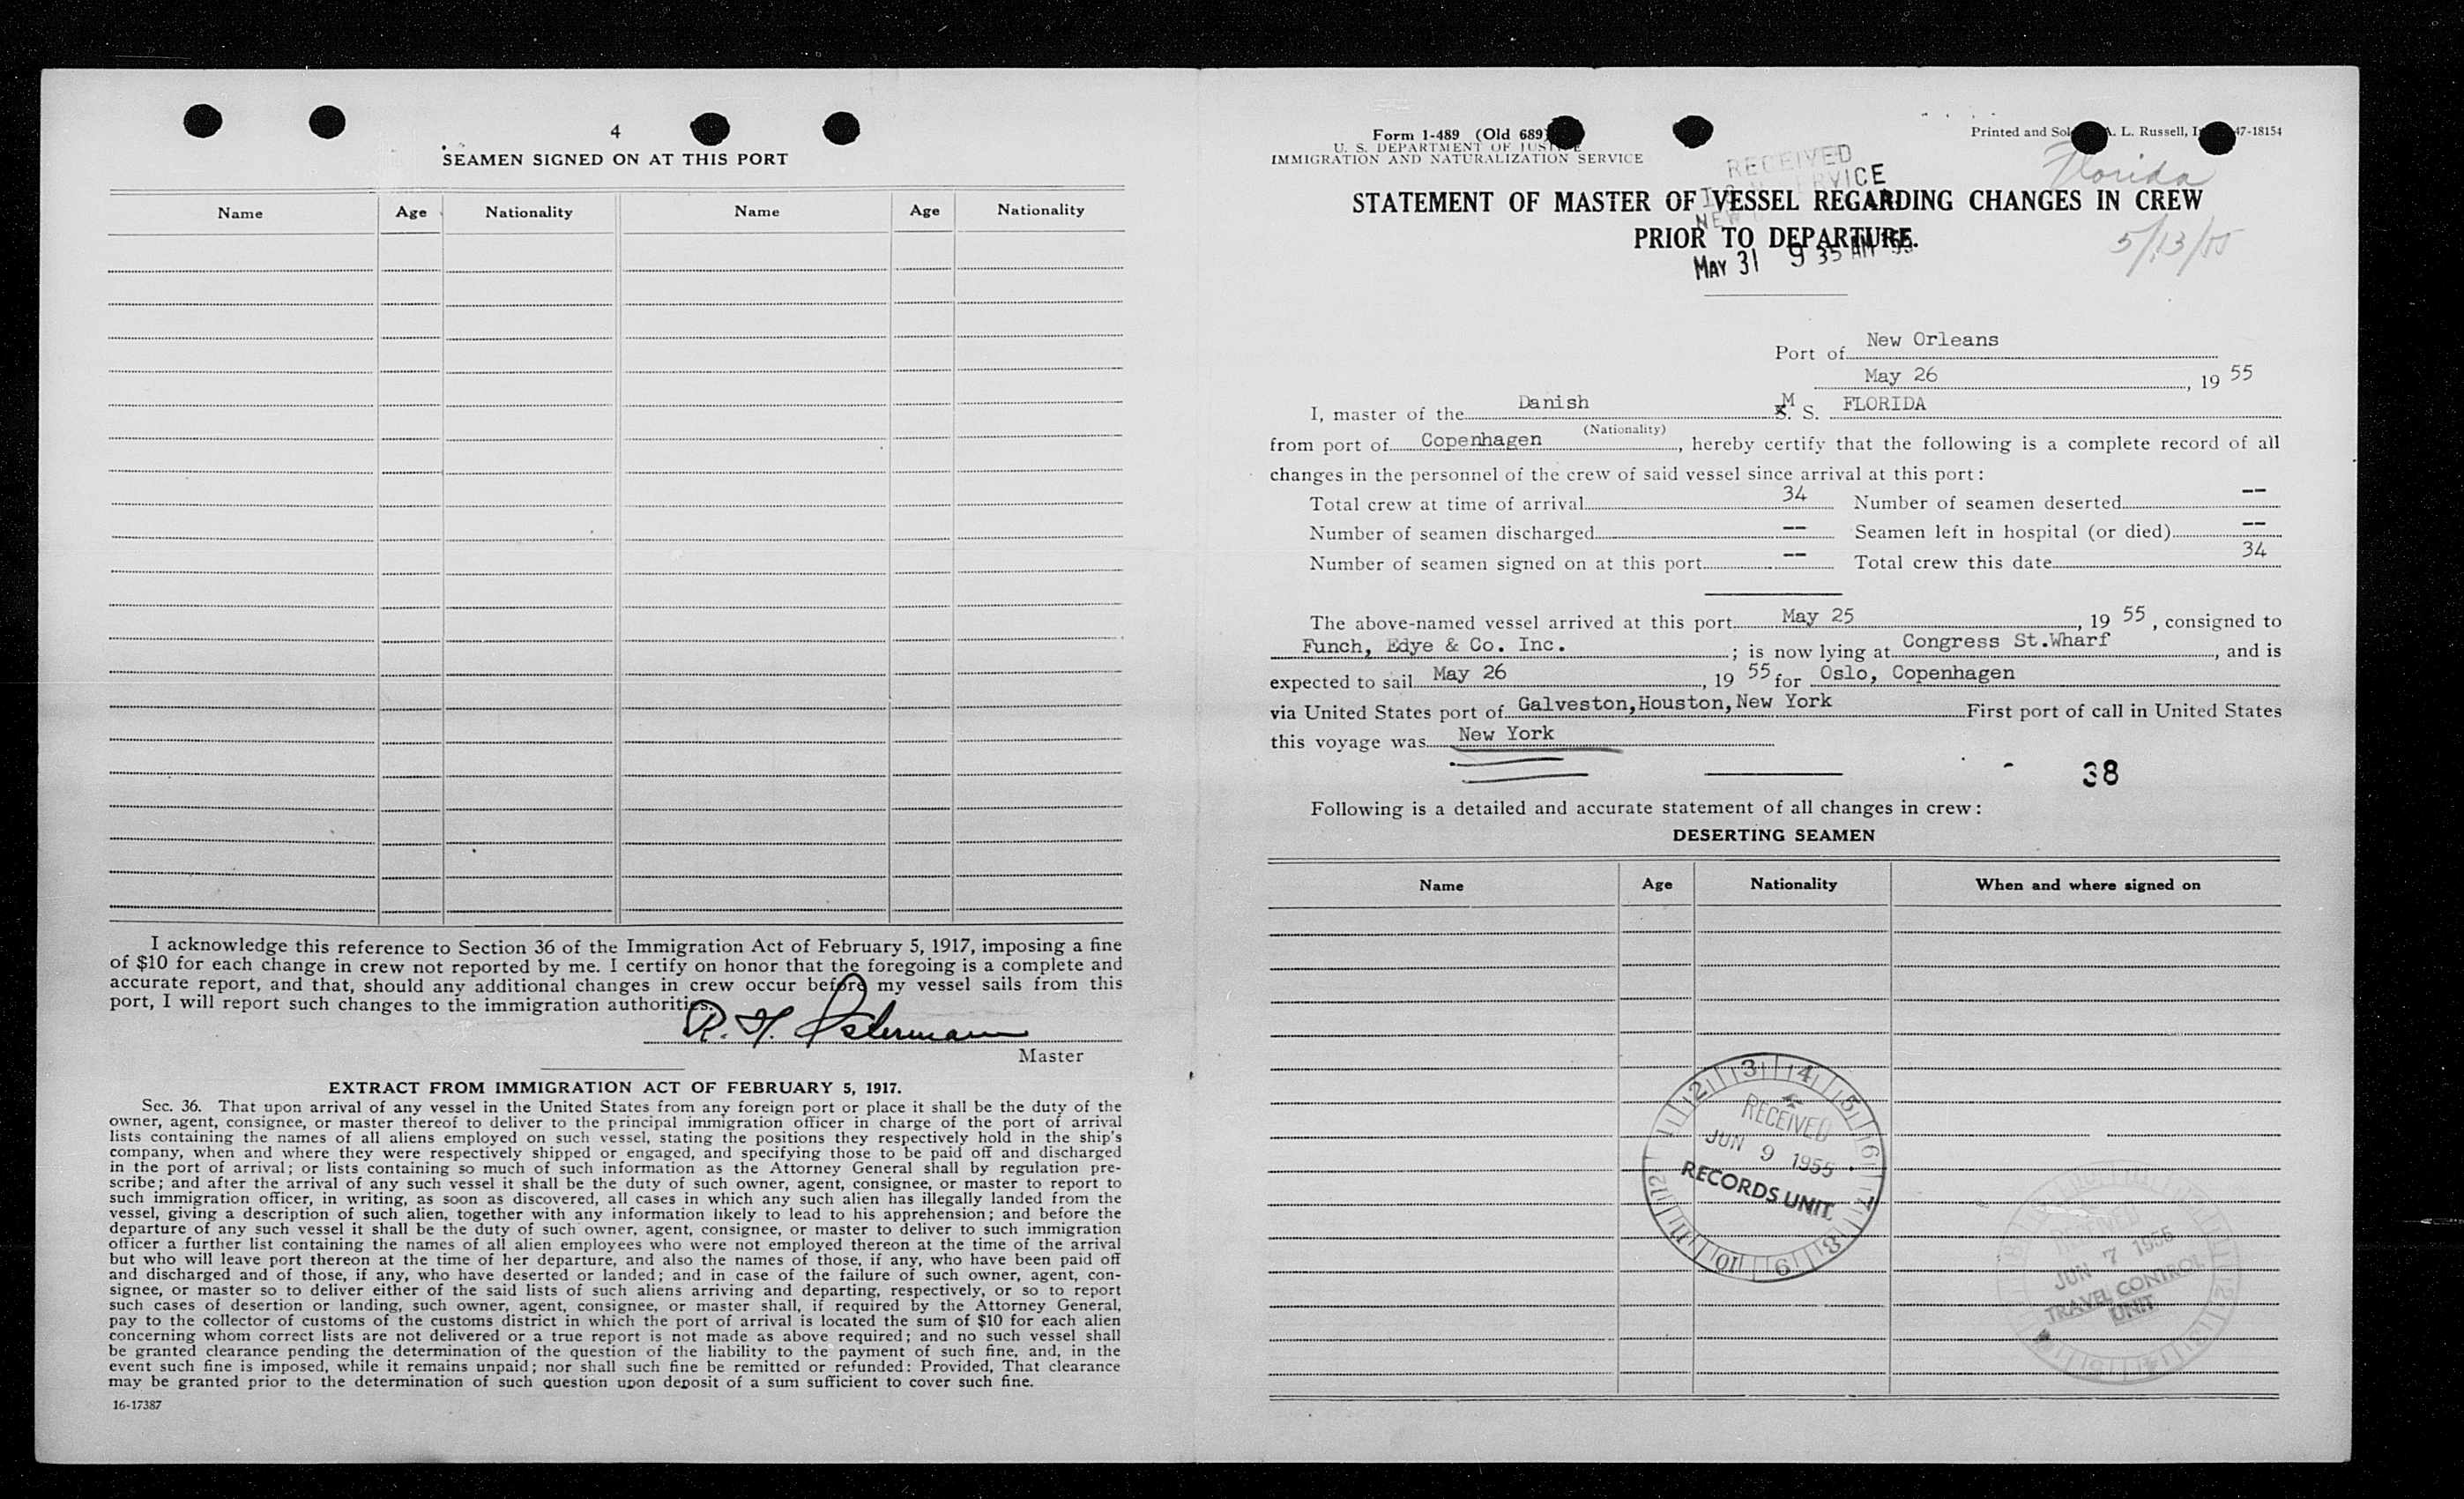 4
SEAMEN SIGNED ON AT THIS PORT
Name Age Nationality Name Age Nationality
I acknowledge this reference to Section 36 of the Immigration Act of February 5, 1917, imposing a fine
of $10 for each change in crew not reported by me. I certify on honor that the foregoing is a complete and
accurate report, and that, should any additional changes in crew occur before my vessel sails from this
port, I will report such changes to the immigration authorities.
R. H. Ostermann
Master
EXTRACT FROM IMMIGRATION ACT OF FEBRUARY 5, 1917.
Sec. 36. That upon arrival of any vessel in the United States from any foreign port or place it shall be the duty of the
owner, agent, consignee, or master thereof to deliver to the principal immigration officer in charge of the port of arrival
lists containing the names of all aliens employed on such vessel, stating the positions they respectively hold in the ship's
company, when and where they were respectively shipped or engaged, and specifying those to be paid off and discharged
in the port of arrival; or lists containing so much of such information as the Attorney General shall by regulation pre-
scribe; and after the arrival of any such vessel it shall be the duty of such owner, agent, consignee, or master to report to
such immigration officer, in writing, as soon as discovered, all cases in which any such alien has illegally landed from the
vessel, giving a description of such alien, together with any information likely to lead to his apprehension; and before the
departure of any such vessel it shall be the duty of such owner, agent, consignee, or master to deliver to such immigration
officer a further list containing the names of all alien employees who were not employed thereon at the time of the arrival
but who will leave port thereon at the time of her departure, and also the names of those, if any, who have been paid off
and discharged and of those, if any, who have deserted or landed; and in case of the failure of such owner, agent, con-
signee, or master so to deliver either of the said lists of such aliens arriving and departing, respectively, or so to report
such cases of desertion or landing, such owner, agent, consignee, or master shall, if required by the Attorney General,
pay to the collector of customs of the customs district in which the port of arrival is located the sum of $10 for each alien
concerning whom correct lists are not delivered or a true report is not made as above required; and no such vessel shall
be granted clearance pending the determination of the question of the liability to the payment of such fine, and, in the
event such fine is imposed, while it remains unpaid; nor shall such fine be remitted or refunded: Provided, That clearance
may be granted prior to the determination of such question upon deposit of a sum sufficient to cover such fine.
16-17387
Form 1-489 (Old 689)
U. S. DEPARTMENT OF JUSTICE
IMMIGRATION AND NATURALIZATION SERVICE
Printed and Sold A. L. Russell, 47-18154
Florida
5/13/55
RECEIVED
SERVICE
NEW
MAY 31 9 35 AM '55
STATEMENT OF MASTER OF VESSEL REGARDING CHANGES IN CREW
PRIOR TO DEPARTURE.
Port of New Orleans
May 26, 19 55
I, master of the Danish M S. FLORIDA
(Nationality)
from port of Copenhagen, hereby certify that the following is a complete record of all
changes in the personnel of the crew of said vessel since arrival at this port:
Total crew at time of arrival 34 Number of seamen deserted --
Number of seamen discharged -- Seamen left in hospital (or died) --
Number of seamen signed on at this port -- Total crew this date 34
The above-named vessel arrived at this port May 25, 19 55, consigned to
Funch, Edye & Co. Inc.; is now lying at Congress St.Wharf, and is
expected to sail May 26, 19 55 for Oslo, Copenhagen
via United States port of Galveston,Houston,New York First port of call in United States
this voyage was New York
38
Following is a detailed and accurate statement of all changes in crew:
DESERTING SEAMEN
Name Age Nationality When and where signed on
RECEIVED
JUN 9 1955
RECORDS UNIT.
1 2 3 4 5 6 7 8 9 10 11 12
RECEIVED
JUN 7 1955
TRAVEL CONTROL
UNIT